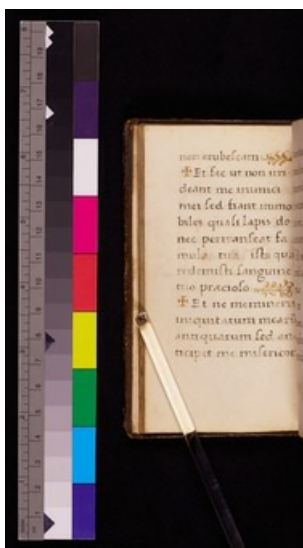 non erubescam
Et fac ut non irri
deant me inimici
mei sed fiant immo
biles quasi lapis do
nec pertranseat fa
mula tua ista qua
redemisti sanguine
tuo præcioso
Et ne memineris
iniquitatum mearu
antiquarum sed an
ticipet me misericor